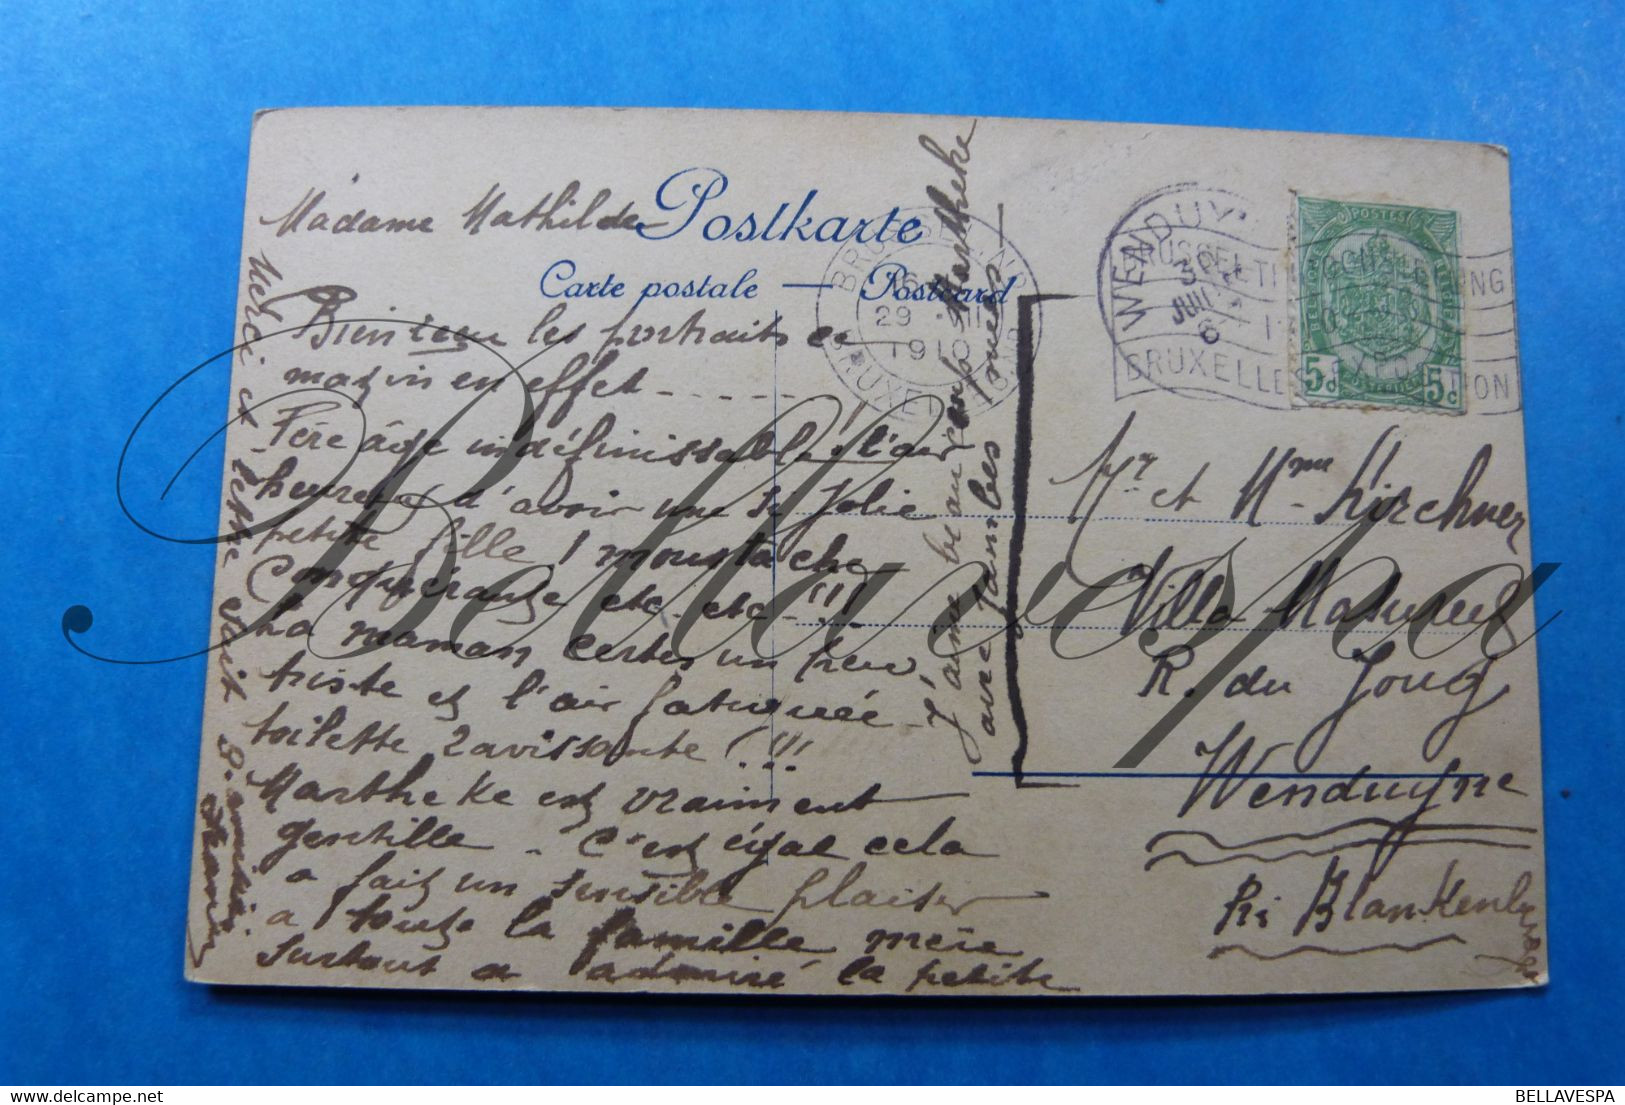 Postkarte
Carte postale — Postcard
Madame Mathilde
Bien reçu les portraits ce
matin en effet - - - - -
Père âge indéfinissable! l'air
heureux d'avoir une si jolie
petite fille! moustache
Conquérante etc. etc. !!!
La maman certes un peu
triste et l'air fatiguée -
toilette ravissante!!!
Marthe Ke est vraiment
gentille - C'est égal cela
a fait un sensible plaisir
a toute la famille mère
Surtout a admiré la petite
Merci et tout
J'aime beaucoup Martheke
avec jambes nues
BRUXELLES
29 VII
1910
BRUSSEL
WENDUYNE
JUIL
BRUXELLES EXPOSITION
POSTES
BELGIQUE
5c 5c
Mr et Mme Kirchner
Villa
R. du
Wenduyne
Blankenberghe
Bellavespa
BELLAVESPA